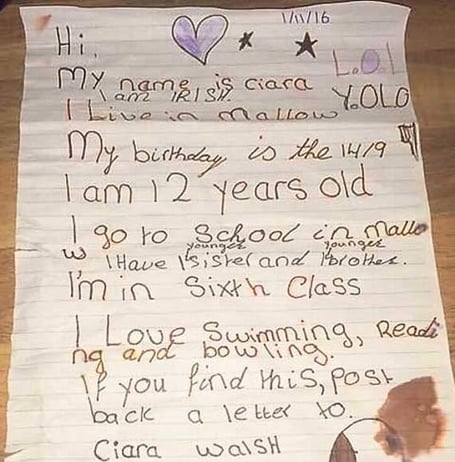 1/11/16
Hi,
L.O.L
My name is Ciara
I am IRISH.
Y.OLO
I Live in Mallow
My birthday is the 14/9
I am 12 years old
I go to School in Mallo
w
younger younger
I Have 1 sister and 1 brother.
I'm in Sixth Class
I Love Swimming, Readi
ng and bowling.
If you find this, post
back a letter to.
Ciara Walsh